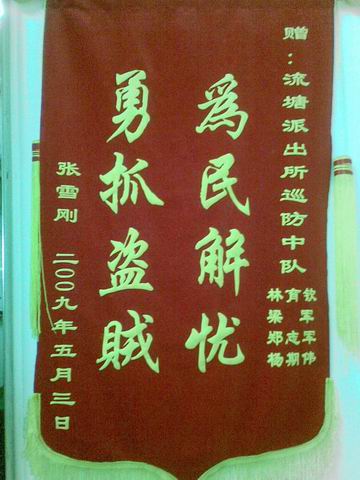 赠：流塘派出所巡防中队
林育钦
梁 军
郑志军
杨期伟
为民解忧
勇抓盗贼
张雪刚 二〇〇九年五月三日